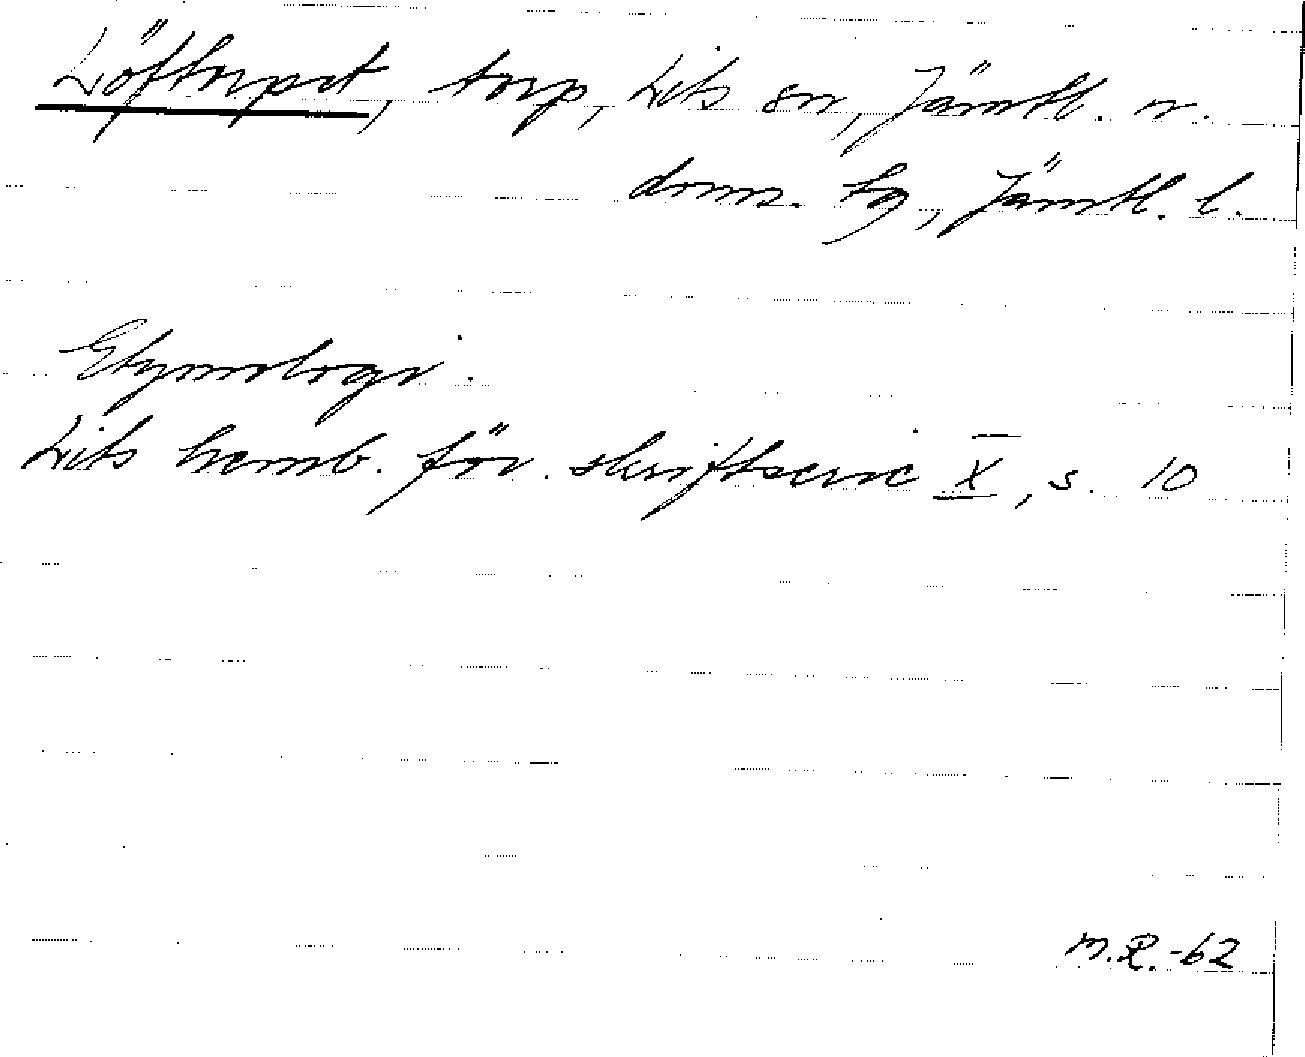 Löftorpet, torp, Lits sn, Jämtl. n.
doms. tg, Jämtl. l.
Etymologi.
Lits hemb. för. skriftserie X, s. 10
M.R.-62